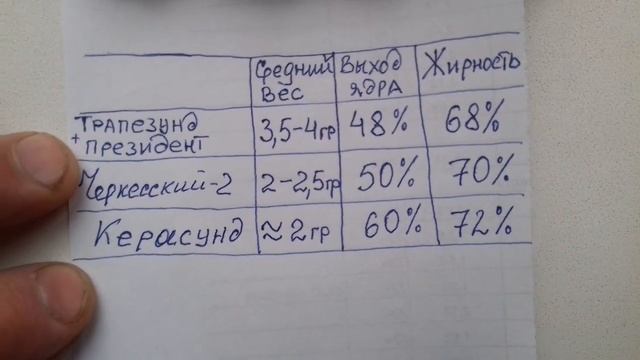 Средний Вес Выход ядра Жирность
Трапезунд + президент 3,5-4гр 48% 68%
Черкесский-2 2-2,5гр 50% 70%
Керасунд ≈2гр 60% 72%